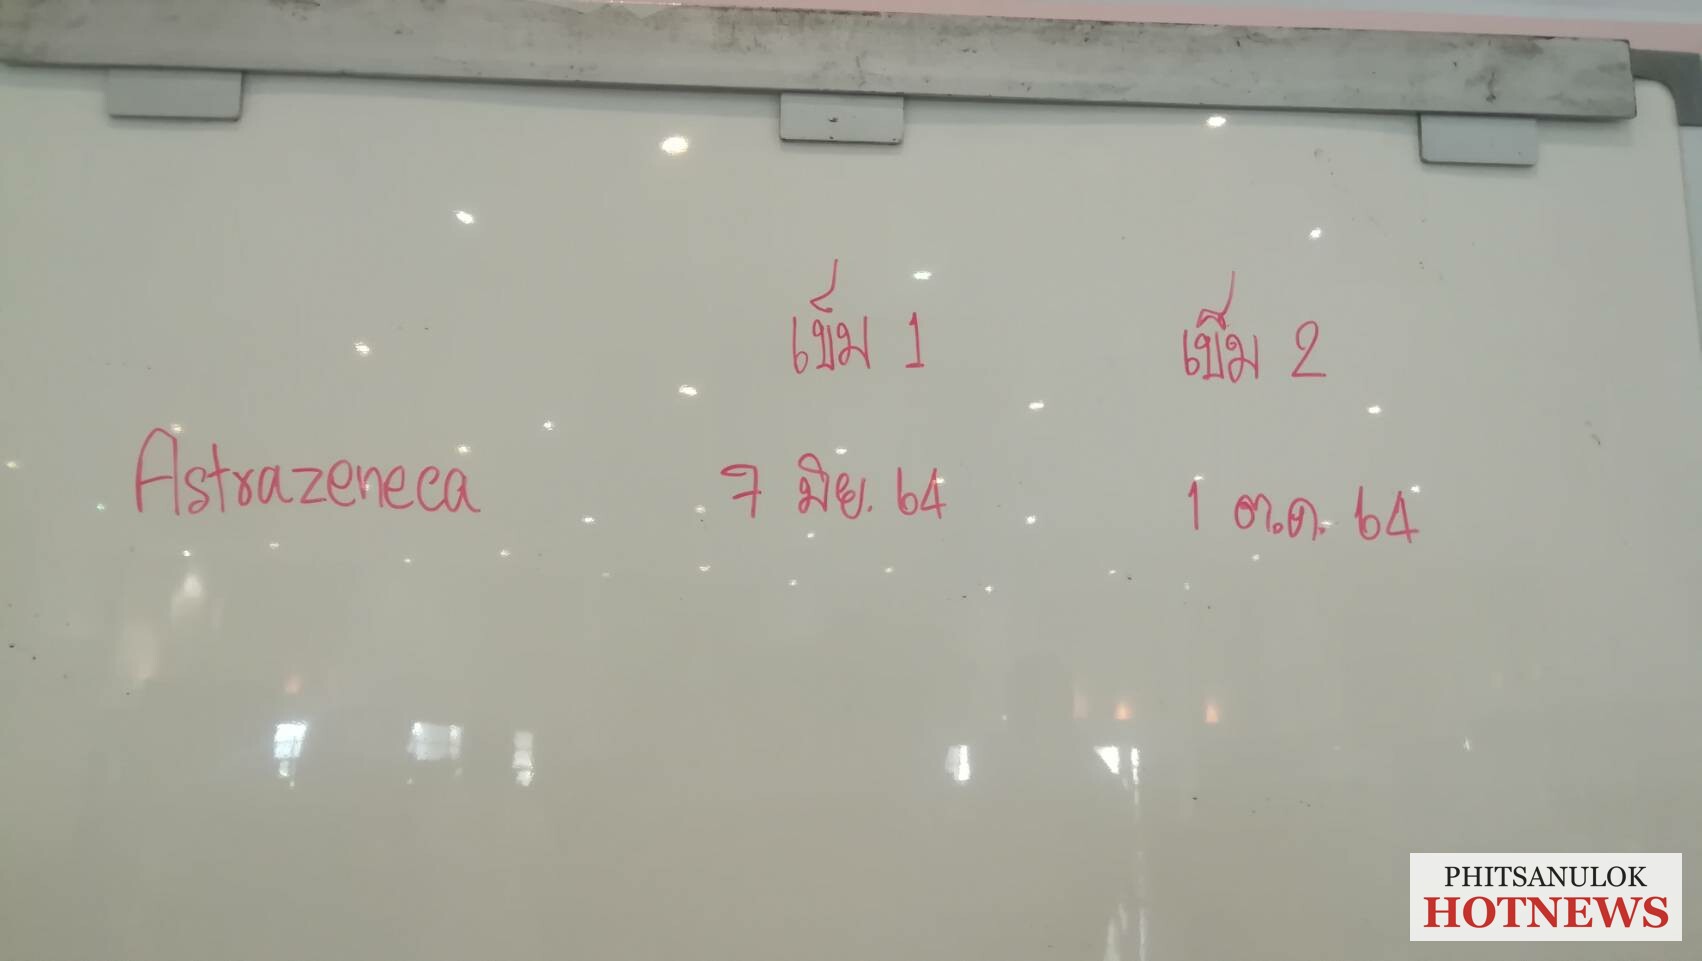 เข็ม 1 เข็ม 2
Astrazeneca 7 มิย. 64 1 ต.ค. 64
PHITSANULOK
HOTNEWS